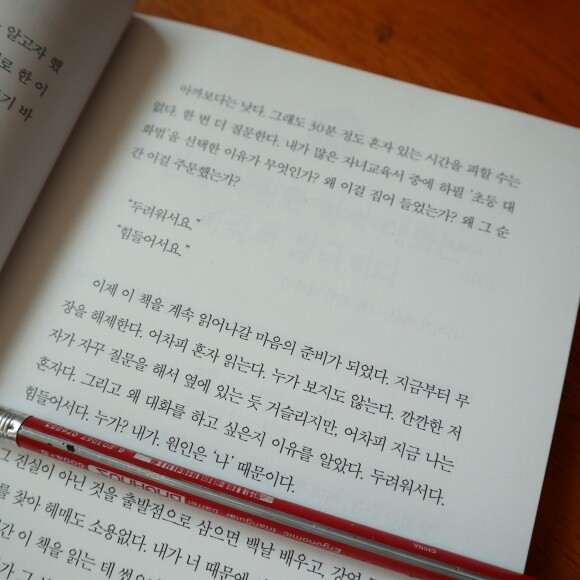 알고자 했
로 한 이
기 바
아까보다는 낫다. 그래도 30분 정도 혼자 있는 시간을 피할 수는
없다. 한 번 더 질문한다. 내가 많은 자녀교육서 중에 하필 '초등 대
화법'을 선택한 이유가 무엇인가? 왜 이걸 집어 들었는가? 왜 그 순
간 이걸 주문했는가?
"두려워서요."
"힘들어서요."
이제 이 책을 계속 읽어나갈 마음의 준비가 되었다. 지금부터 무
장을 해제한다. 어차피 혼자 읽는다. 누가 보지도 않는다. 깐깐한 저
자가 자꾸 질문을 해서 옆에 있는 듯 거슬리지만, 어차피 지금 나는
혼자다. 그리고 왜 대화를 하고 싶은지 이유를 알았다. 두려워서다.
힘들어서다. 누가? 내가. 원인은 '나' 때문이다.
Ergonomic triangular barrel
CHINA
그 진실이 아닌 것을 출발점으로 삼으면 백날 배우고, 강연
를 찾아 헤매도 소용없다. 내가 너 때문에
간 이 책을 읽는 데